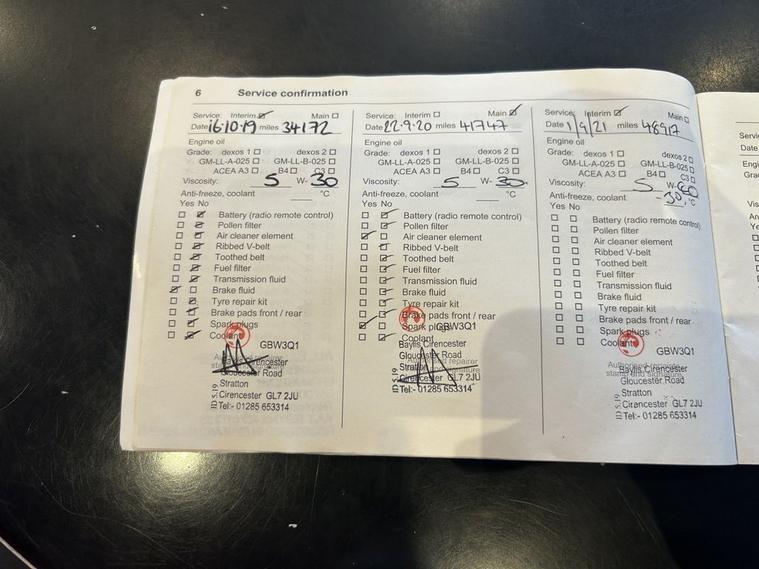 6 Service confirmation
Service: Interim Main
Date 16.10.19 miles 34172
Engine oil
Grade: dexos 1 dexos 2
GM-LL-A-025 GM-LL-B-025
ACEA A3 B4 C3
Viscosity: 5 W- 30
Anti-freeze, coolant °C
Yes No
Battery (radio remote control)
Pollen filter
Air cleaner element
Ribbed V-belt
Toothed belt
Fuel filter
Transmission fluid
Brake fluid
Tyre repair kit
Brake pads front / rear
Spark plugs
Coolant
GBW3Q1
Baylis Cirencester
Gloucester Road
Stratton
Cirencester GL7 2JU
Tel:- 01285 653314
Service: Interim Main
Date 22.9.20 miles 41747
Engine oil
Grade: dexos 1 dexos 2
GM-LL-A-025 GM-LL-B-025
ACEA A3 B4 C3
Viscosity: 5 W- 30
Anti-freeze, coolant °C
Yes No
Battery (radio remote control)
Pollen filter
Air cleaner element
Ribbed V-belt
Toothed belt
Fuel filter
Transmission fluid
Brake fluid
Tyre repair kit
Brake pads front / rear
Spark plugs
Coolant
GBW3Q1
Baylis Cirencester
Gloucester Road
Stratton
Cirencester GL7 2JU
Tel:- 01285 653314
Service: Interim Main
Date 1/9/21 miles 48917
Engine oil
Grade: dexos 1 dexos 2
GM-LL-A-025 GM-LL-B-025
ACEA A3 B4 C3
Viscosity: 5 W-
Anti-freeze, coolant -30 °C
Yes No
Battery (radio remote control)
Pollen filter
Air cleaner element
Ribbed V-belt
Toothed belt
Fuel filter
Transmission fluid
Brake fluid
Tyre repair kit
Brake pads front / rear
Spark plugs
Coolant
GBW3Q1
Authorised repairer
stamp and signature
Baylis Cirencester
Gloucester Road
Stratton
Cirencester GL7 2JU
Tel:- 01285 653314